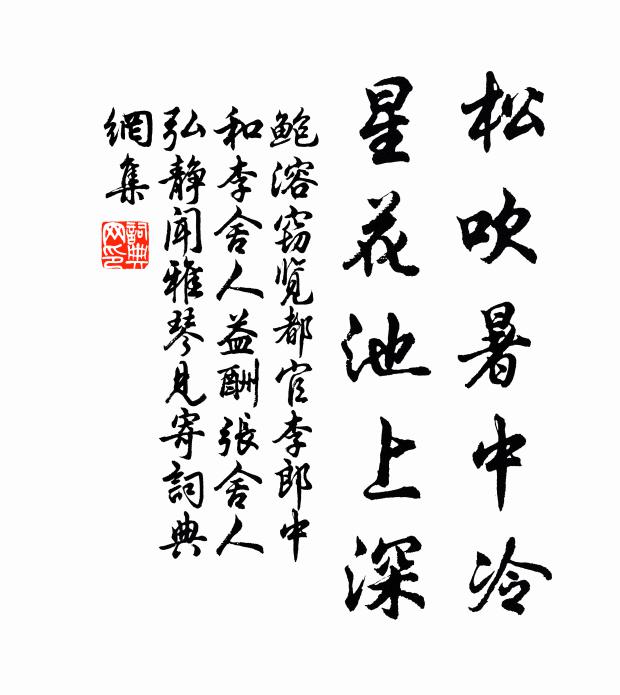 松吹暑中冷
星花池上深
鮑溶窃覧都官李郎中
和李舍人益酬張舍人
弘静闻雅琴見寄詞典
網集
詞典
网印